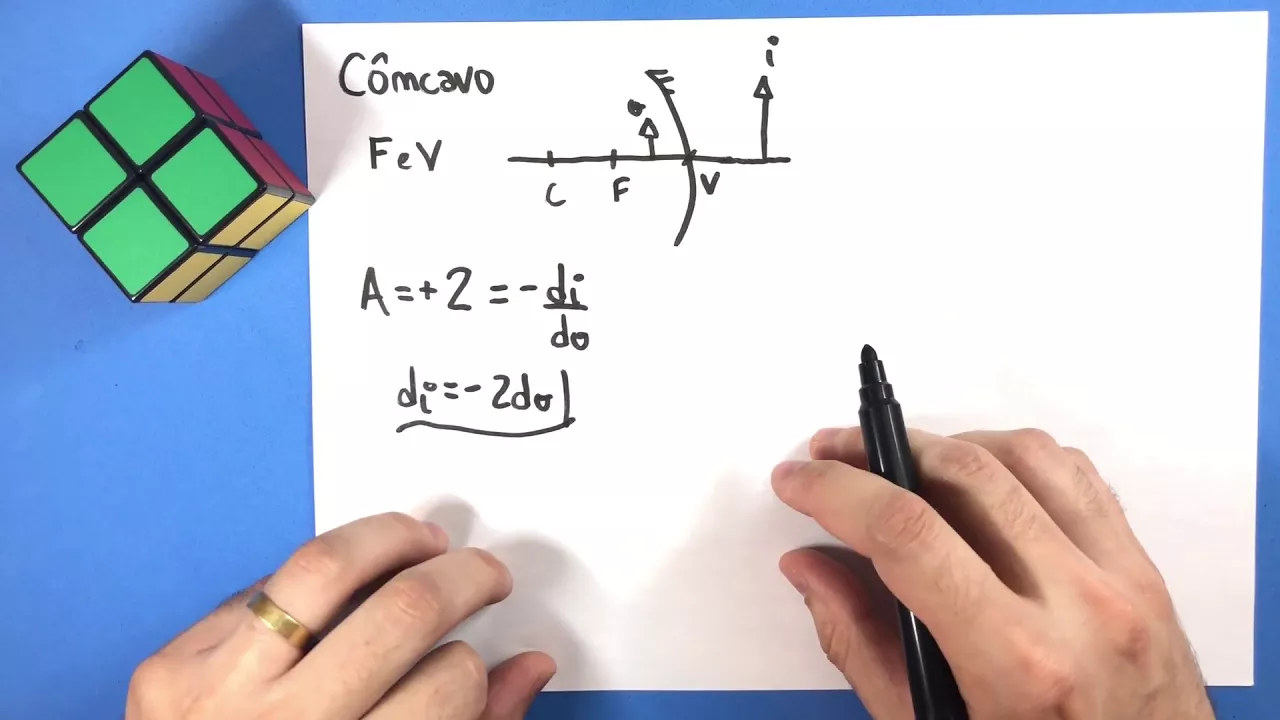 Côncavo
F e V
o
i
C F V
A = + 2 = - di/do
di = - 2do